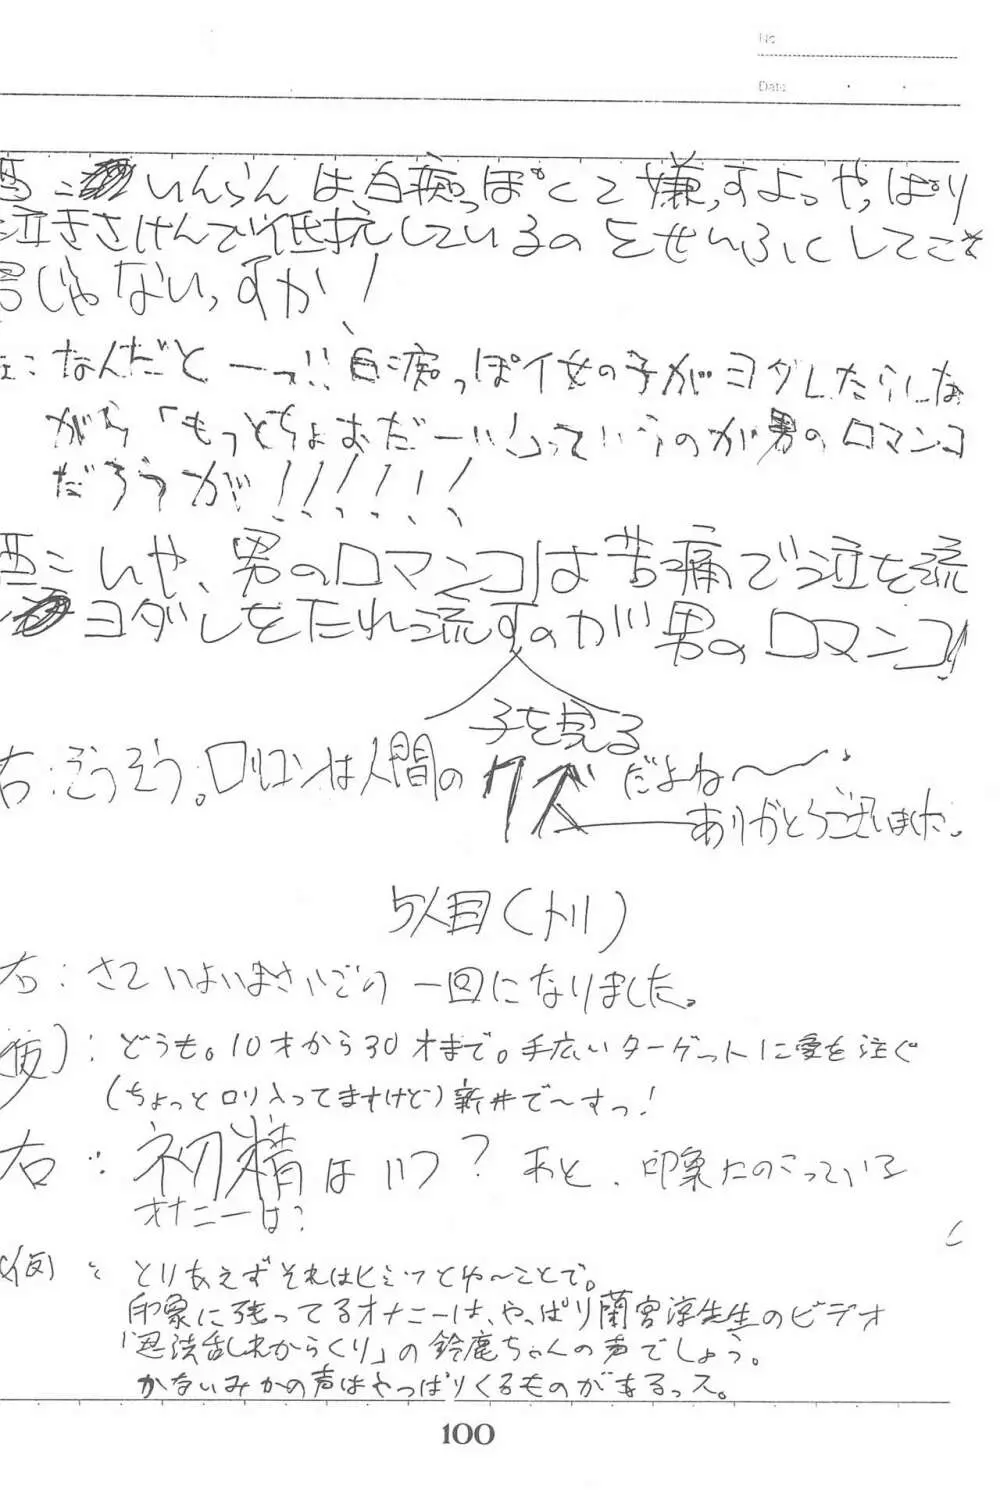 No.
Date
酉：いんらんは、白痴っぽくて嫌っすよっやっぱり
泣きさけんで低抗しているのをせいふくしてこそ
男じゃないっすか！
なんだとーっ!! 白痴っぽイ女の子がヨダレたらしな
がら「もっとちょおだーい！」っていうのが男のロマンコ
だろうが！！！！！！
酉：いや、男のロマンコは苦痛で泣を流
しヨダレをたれ流すのが男のロマンコ！
子を見る
右：そうそう。ロリコンは人間のクズだよね〜
ありがとうございました。
5人目（トリ）
右：さていよいよさいごの一回になりました。
（仮）：どうも。10才から30才まで。手広いターゲットに愛を注ぐ
（ちょっとロリ入ってますけど）新井で〜すっ！
右：初精はいつ？あと、印象にのこっている
オナニーは？
（仮）：とりあえずそれはヒミツとゆ〜ことで。
印象に残ってるオナニーは、やっぱり蘭宮涼先生のビデオ
「忍法乱れからくり」の鈴鹿ちゃんの声でしょう。
かないみかの声はやっぱりくるものがあるっス。
100